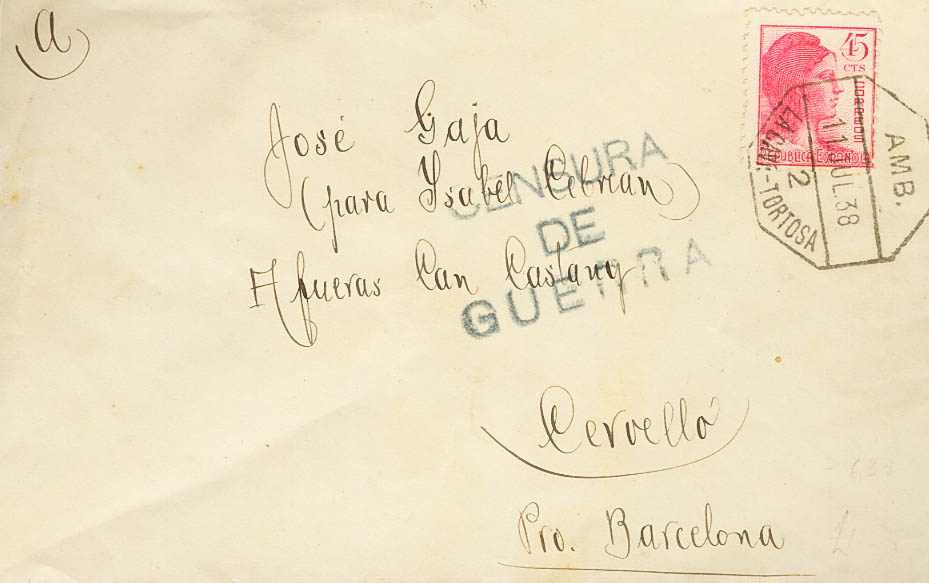 a
José Gaja
(para Ysabel Cebrian)
Afueras Can Castany
Cervelló
Pro. Barcelona
CENSURA
DE
GUERRA
45
CTS
CORREOS
REPUBLICA ESPAÑOLA
AMB.
11 JUL.38
2
-TORTOSA